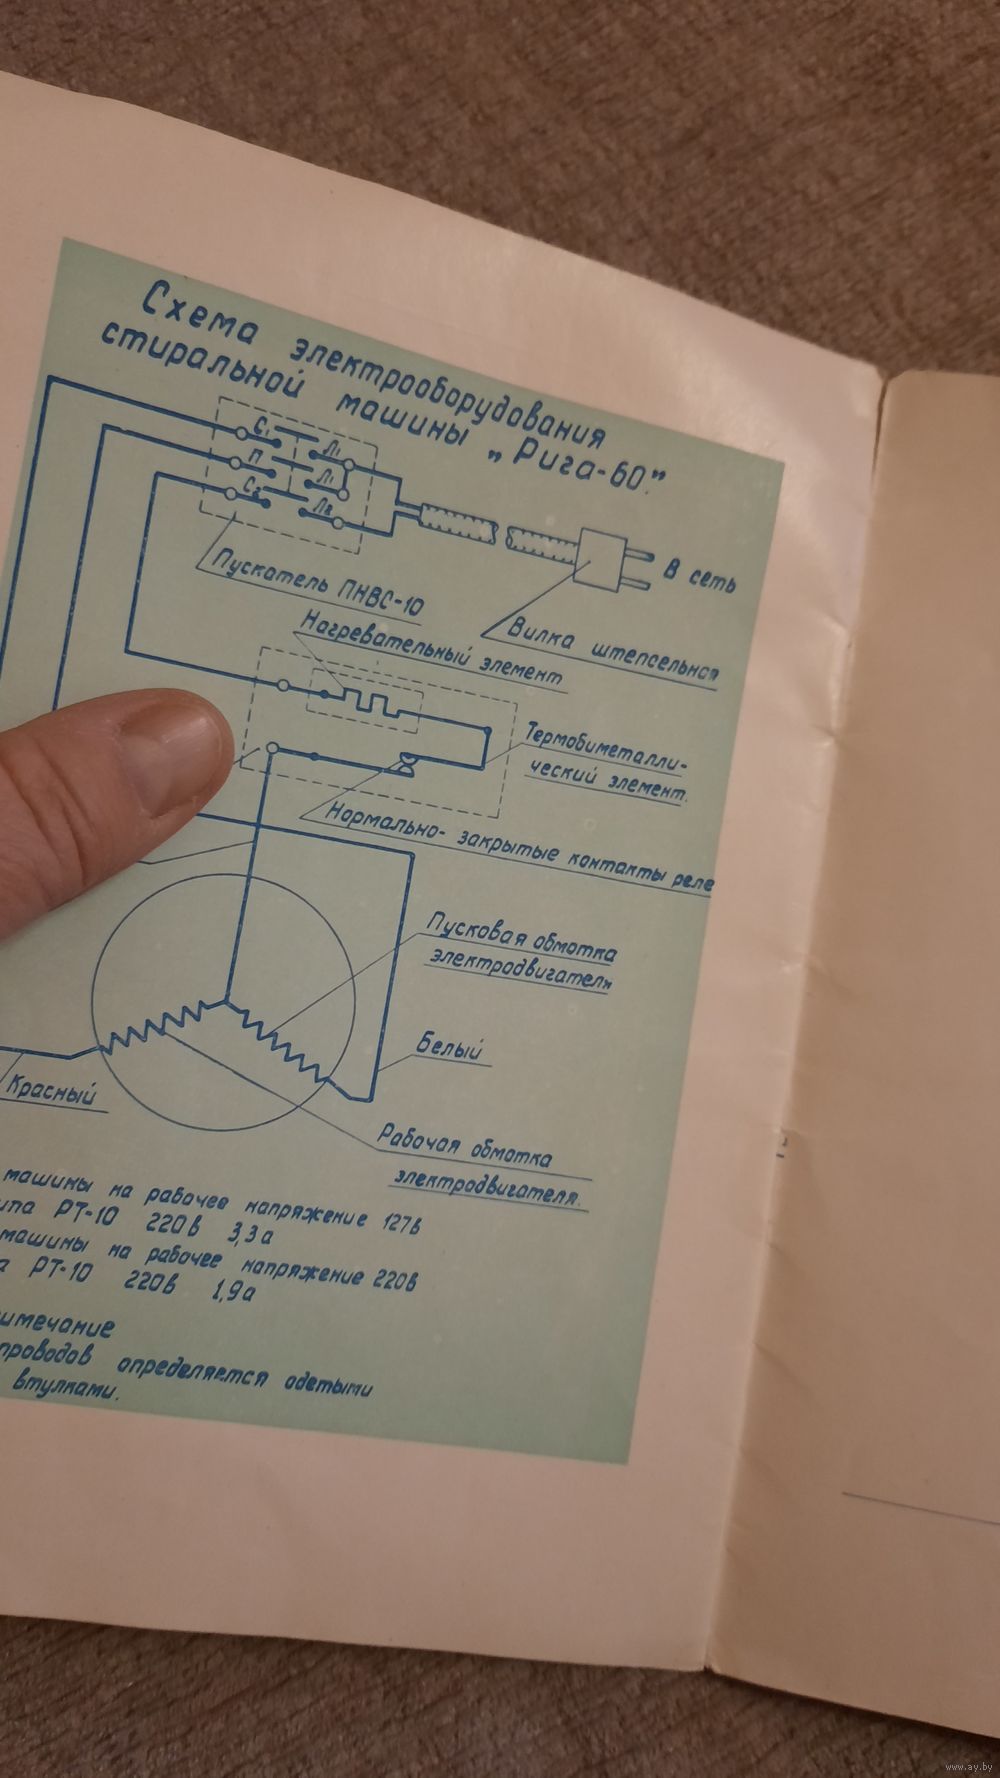 Схема электрооборудования
стиральной машины „Рига-60."
С₁
Л₁
П
Л₁
С₂
Л₂
В сеть
Пускатель ПНВС-10
Вилка штепсельная
Нагревательный элемент
Термобиметалли-
ческий элемент.
Нормально- закрытые контакты реле
Пусковая обмотка
электродвигателя
Белый
Красный
Рабочая обмотка
электродвигателя.
машины на рабочее напряжение 127в
РТ-10 220в 3,3а
машины на рабочее напряжение 220в
РТ-10 220в 1,9а
имечание
проводов определяется одетыми
втулками.
www.ay.by